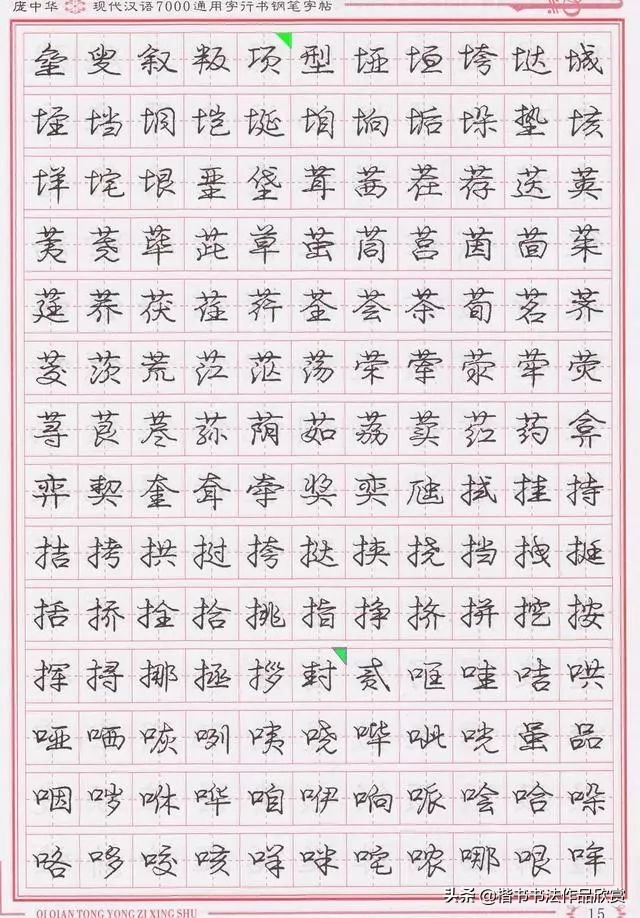 庞中华 现代汉语7000通用字行书钢笔字帖
垒 叟 叙 叛 项 型 垭 垣 垮 垯 城
垤 垱 垌 垲 埏 垍 垧 垢 垛 垫 垓
垟 垞 垠 垩 垡 茸 茜 茬 荐 荙 荚
荑 荛 荜 茈 草 茧 茼 莒 茵 茴 茱
莛 荞 茯 荏 荇 荃 荟 茶 荀 茗 荠
茭 茨 荒 茳 茫 荡 荣 荤 荥 荦 荧
荨 茛 荩 荪 荫 茹 荔 荬 荭 药 弇
弈 契 奎 耷 牵 奖 奕 虺 拭 挂 持
拮 拷 拱 挝 挎 挞 挟 挠 挡 拽 挺
括 挢 拴 拾 挑 指 挣 挤 拼 挖 按
挥 挦 挪 拯 拶 封 贰 哐 哇 咭 哄
哑 哂 咴 咧 咦 哓 哔 呲 咣 虽 品
咽 哕 咻 哗 咱 咿 响 哌 哙 哈 哚
咯 哆 咬 咳 咩 咪 咤 哝 哪 哏 哞
头条 @楷书书法作品欣赏
QI QIAN TONG YONG ZI XING SHU
15